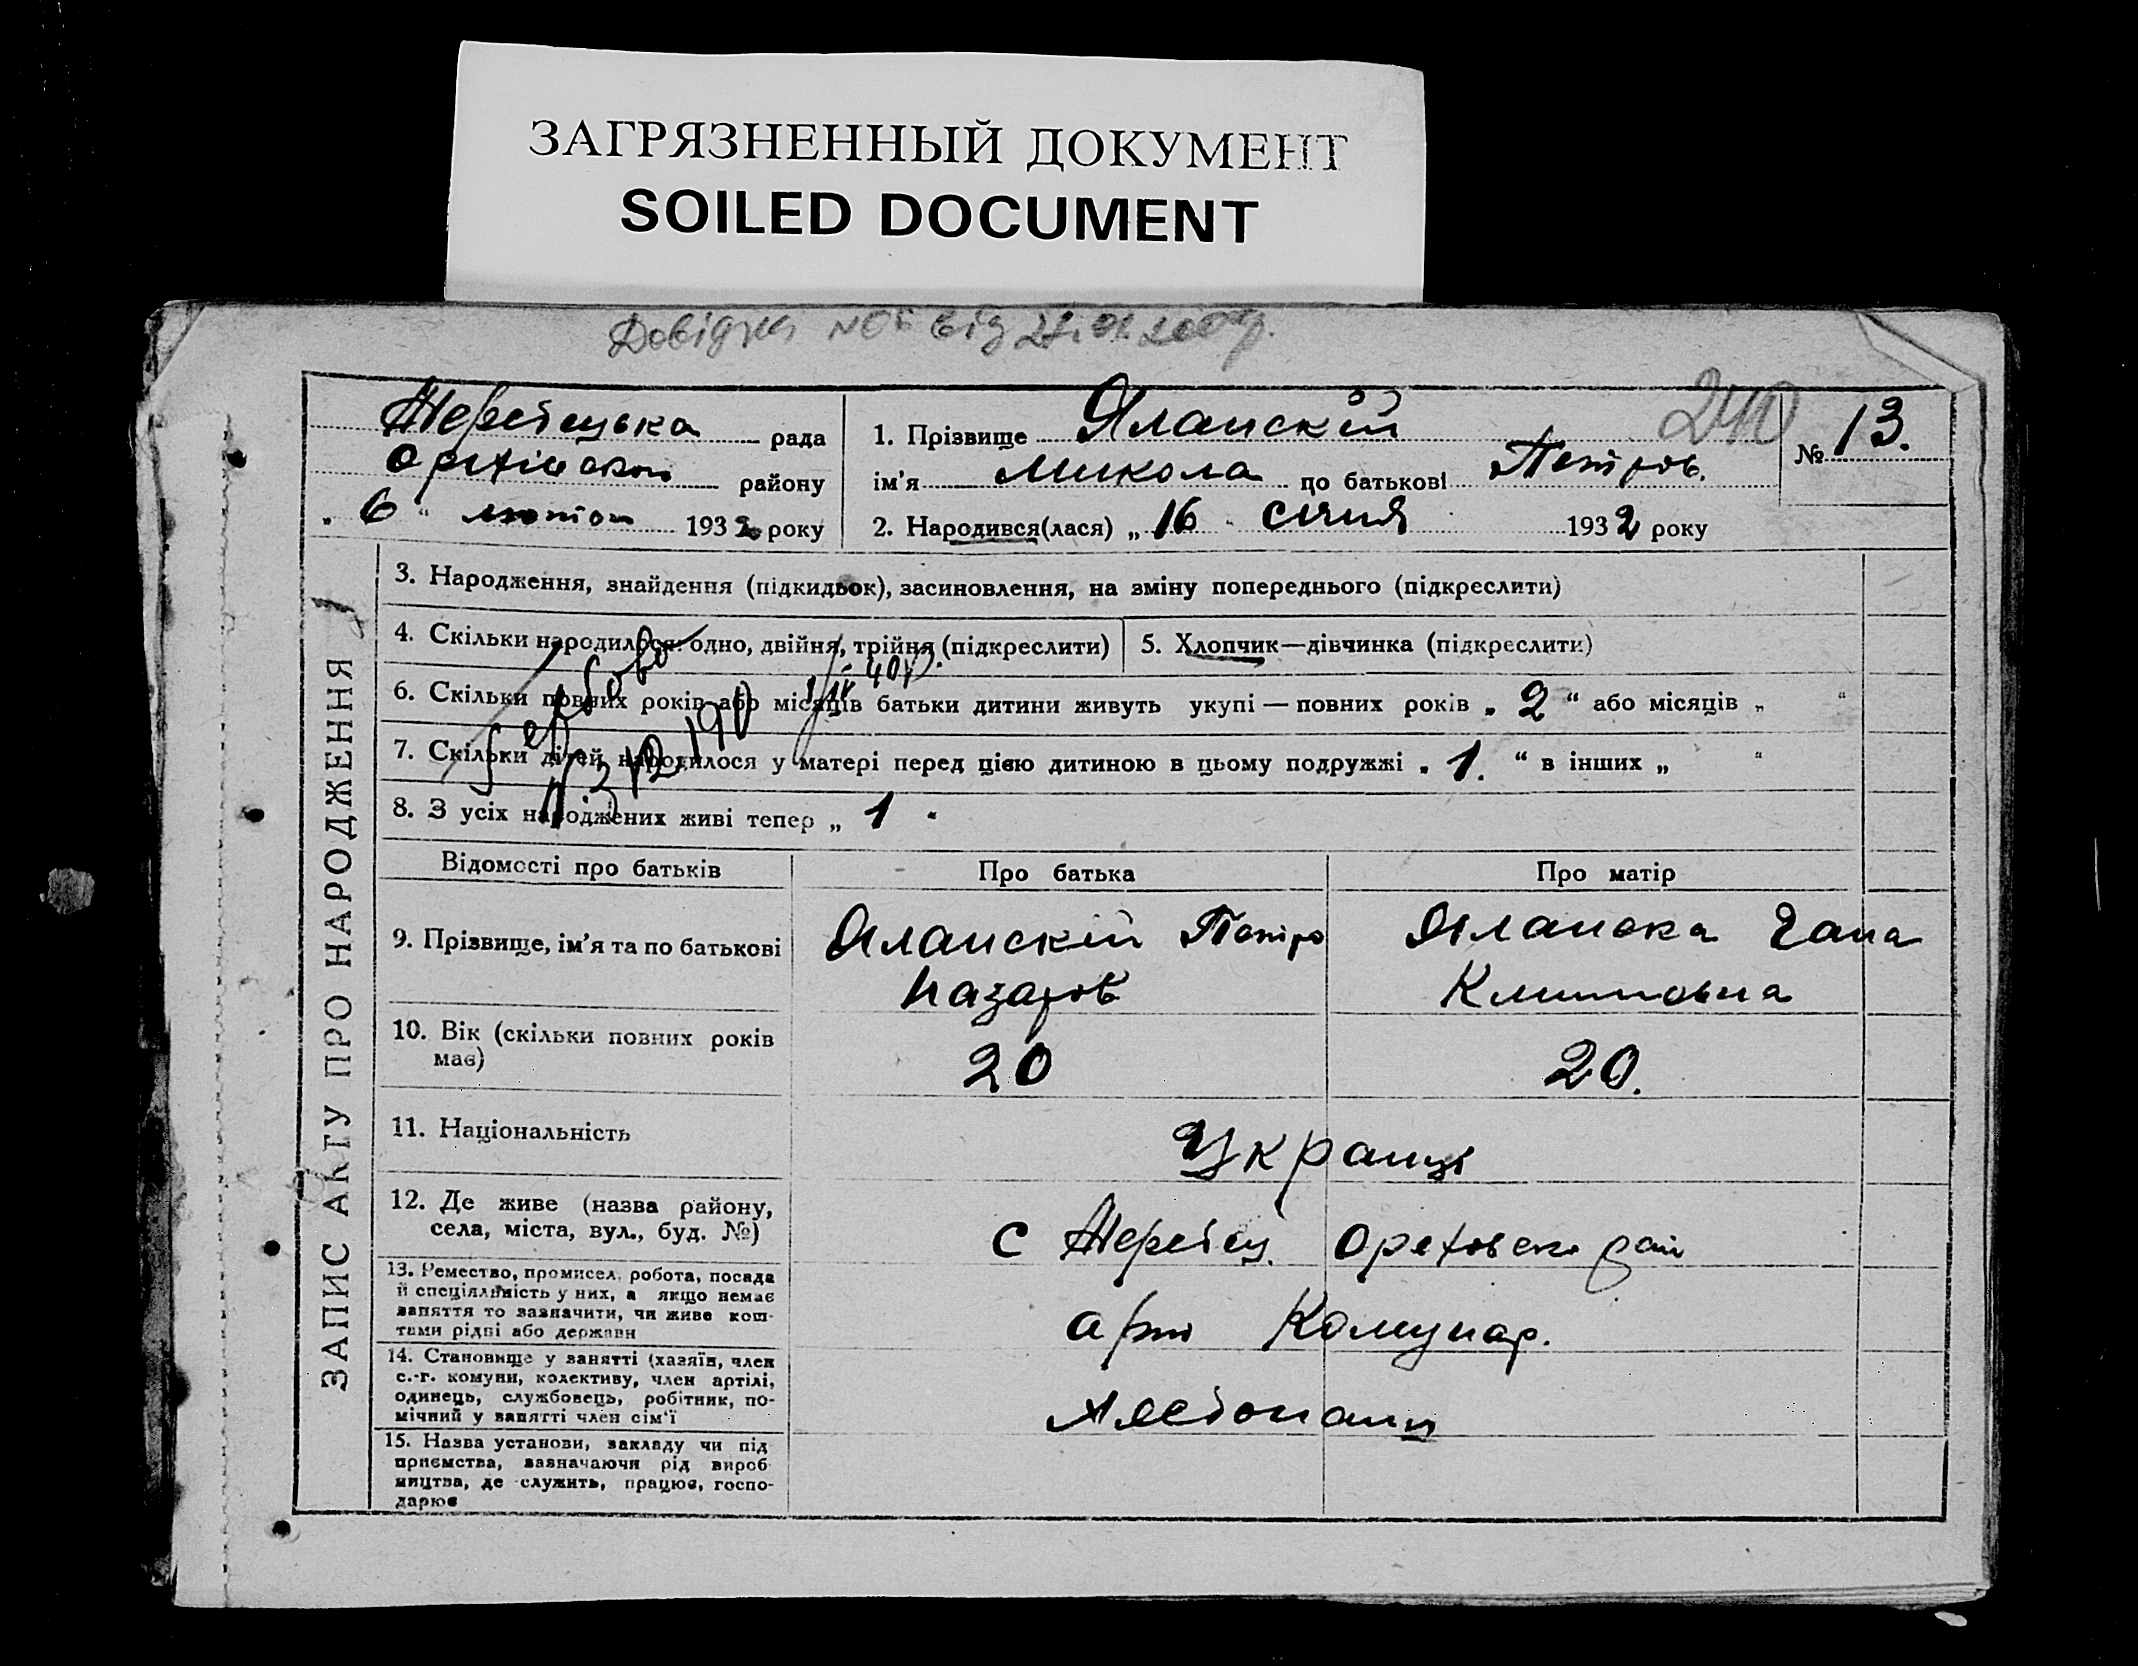 ЗАГРЯЗНЕННЫЙ ДОКУМЕНТ
SOILED DOCUMENT
Довідка від
240
Жеребецька рада
району
„ 6 “ лютого 1932 року
1. Прізвище Яланскій
ім’я Микола по батькові Петров.
2. Народився(лася) „ 16 “ січня 1932 року
№ 13.
ЗАПИС АКТУ ПРО НАРОДЖЕННЯ
3. Народження, знайдення (підкидьок), засиновлення, на зміну попереднього (підкреслити)
4. Скільки народилося: одно, двійня, трійня (підкреслити)
5. Хлопчик—дівчинка (підкреслити)
6. Скільки повних років або місяців батьки дитини живуть укупі — повних років „ 2 “ або місяців „ “
7. Скільки дітей народилося у матері перед цією дитиною в цьому подружжі „ 1. “ в інших „ “
8. З усіх народжених живі тепер „ 1 “
Відомості про батьків Про батька Про матір
9. Прізвище, ім’я та по батькові Яланскій Петро Яланска Гана
Назаров Климовна
10. Вік (скільки повних років
має) 20 20.
11. Національність Украінці
12. Де живе (назва району,
села, міста, вул., буд. №) с Жеребец. Ореховско рай
13. Ремество, промисел, робота, посада
й спеціяльність у них, а якщо немає
заняття то зазначити, чи живе кош-
тами рідні або держави
арт Комунар.
14. Становище у занятті (хазяїн, член
с.-г. комуни, колективу, член артілі,
одинець, службовець, робітник, по-
мічний у занятті член сім’ї
15. Назва установи, закладу чи під
приємства, зазначаючи рід вироб
ництва, де служить, працює, госпо-
дарює